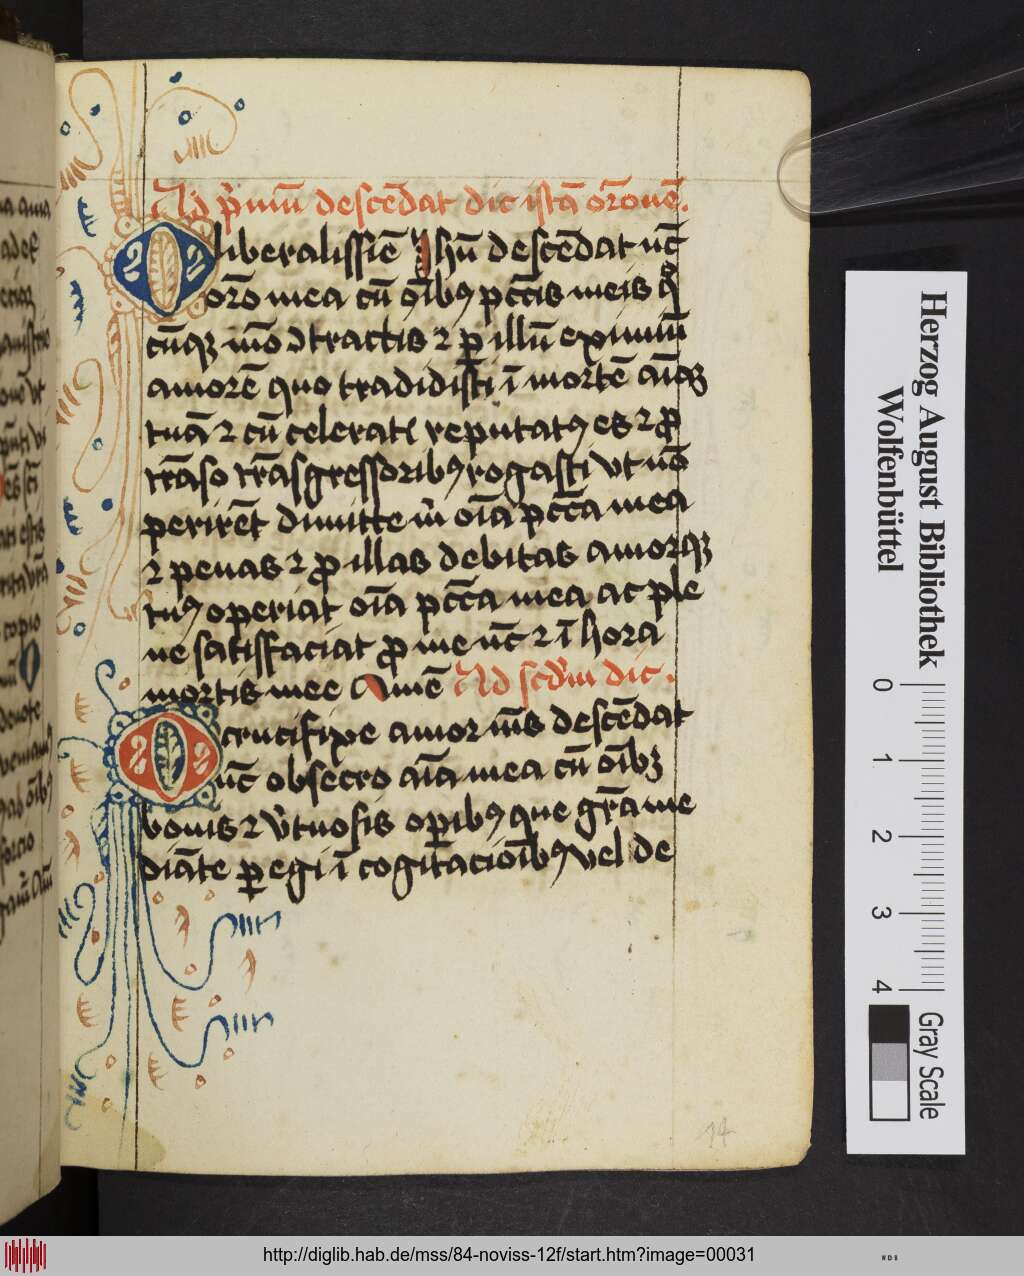 Ad p̄mū descēdat dic istā orōnē.
O liberalissīe ihū descēdat nc̄
orō mea cū oībꝯ pcc̄is meis q̄
cūqꝫ mō ꝯtractis ⁊ ꝑ illū eximiū
amorē quo tradidisti ī mortē aīaꝫ
tuā ⁊ cū celerat̉ reputatꝯ es ⁊ ꝓ
trāsgressoribꝯ rogasti vt nō
perirēt dimitte m̄ oīa pcc̄a mea
⁊ penas ⁊ ꝓ illas debitas amorqꝫ
tuꝯ operiat oīa pcc̄a mea ac ple
ne satisfaciat ꝓ me nc̄ ⁊ ī hora
mortis mee Amē Ad scd̄m dic.
O crucifixe amor m̄s descēdat
nc̄ obsecro aīa mea cū oībꝫ
bonis ⁊ v̄tuosis oꝑibꝯ que grā me
diāte ꝑegi ī cogitacioībꝯ vel de
14
Herzog August Bibliothek
Wolfenbüttel
0 1 2 3 4
Gray Scale
http://diglib.hab.de/mss/84-noviss-12f/start.htm?image=00031